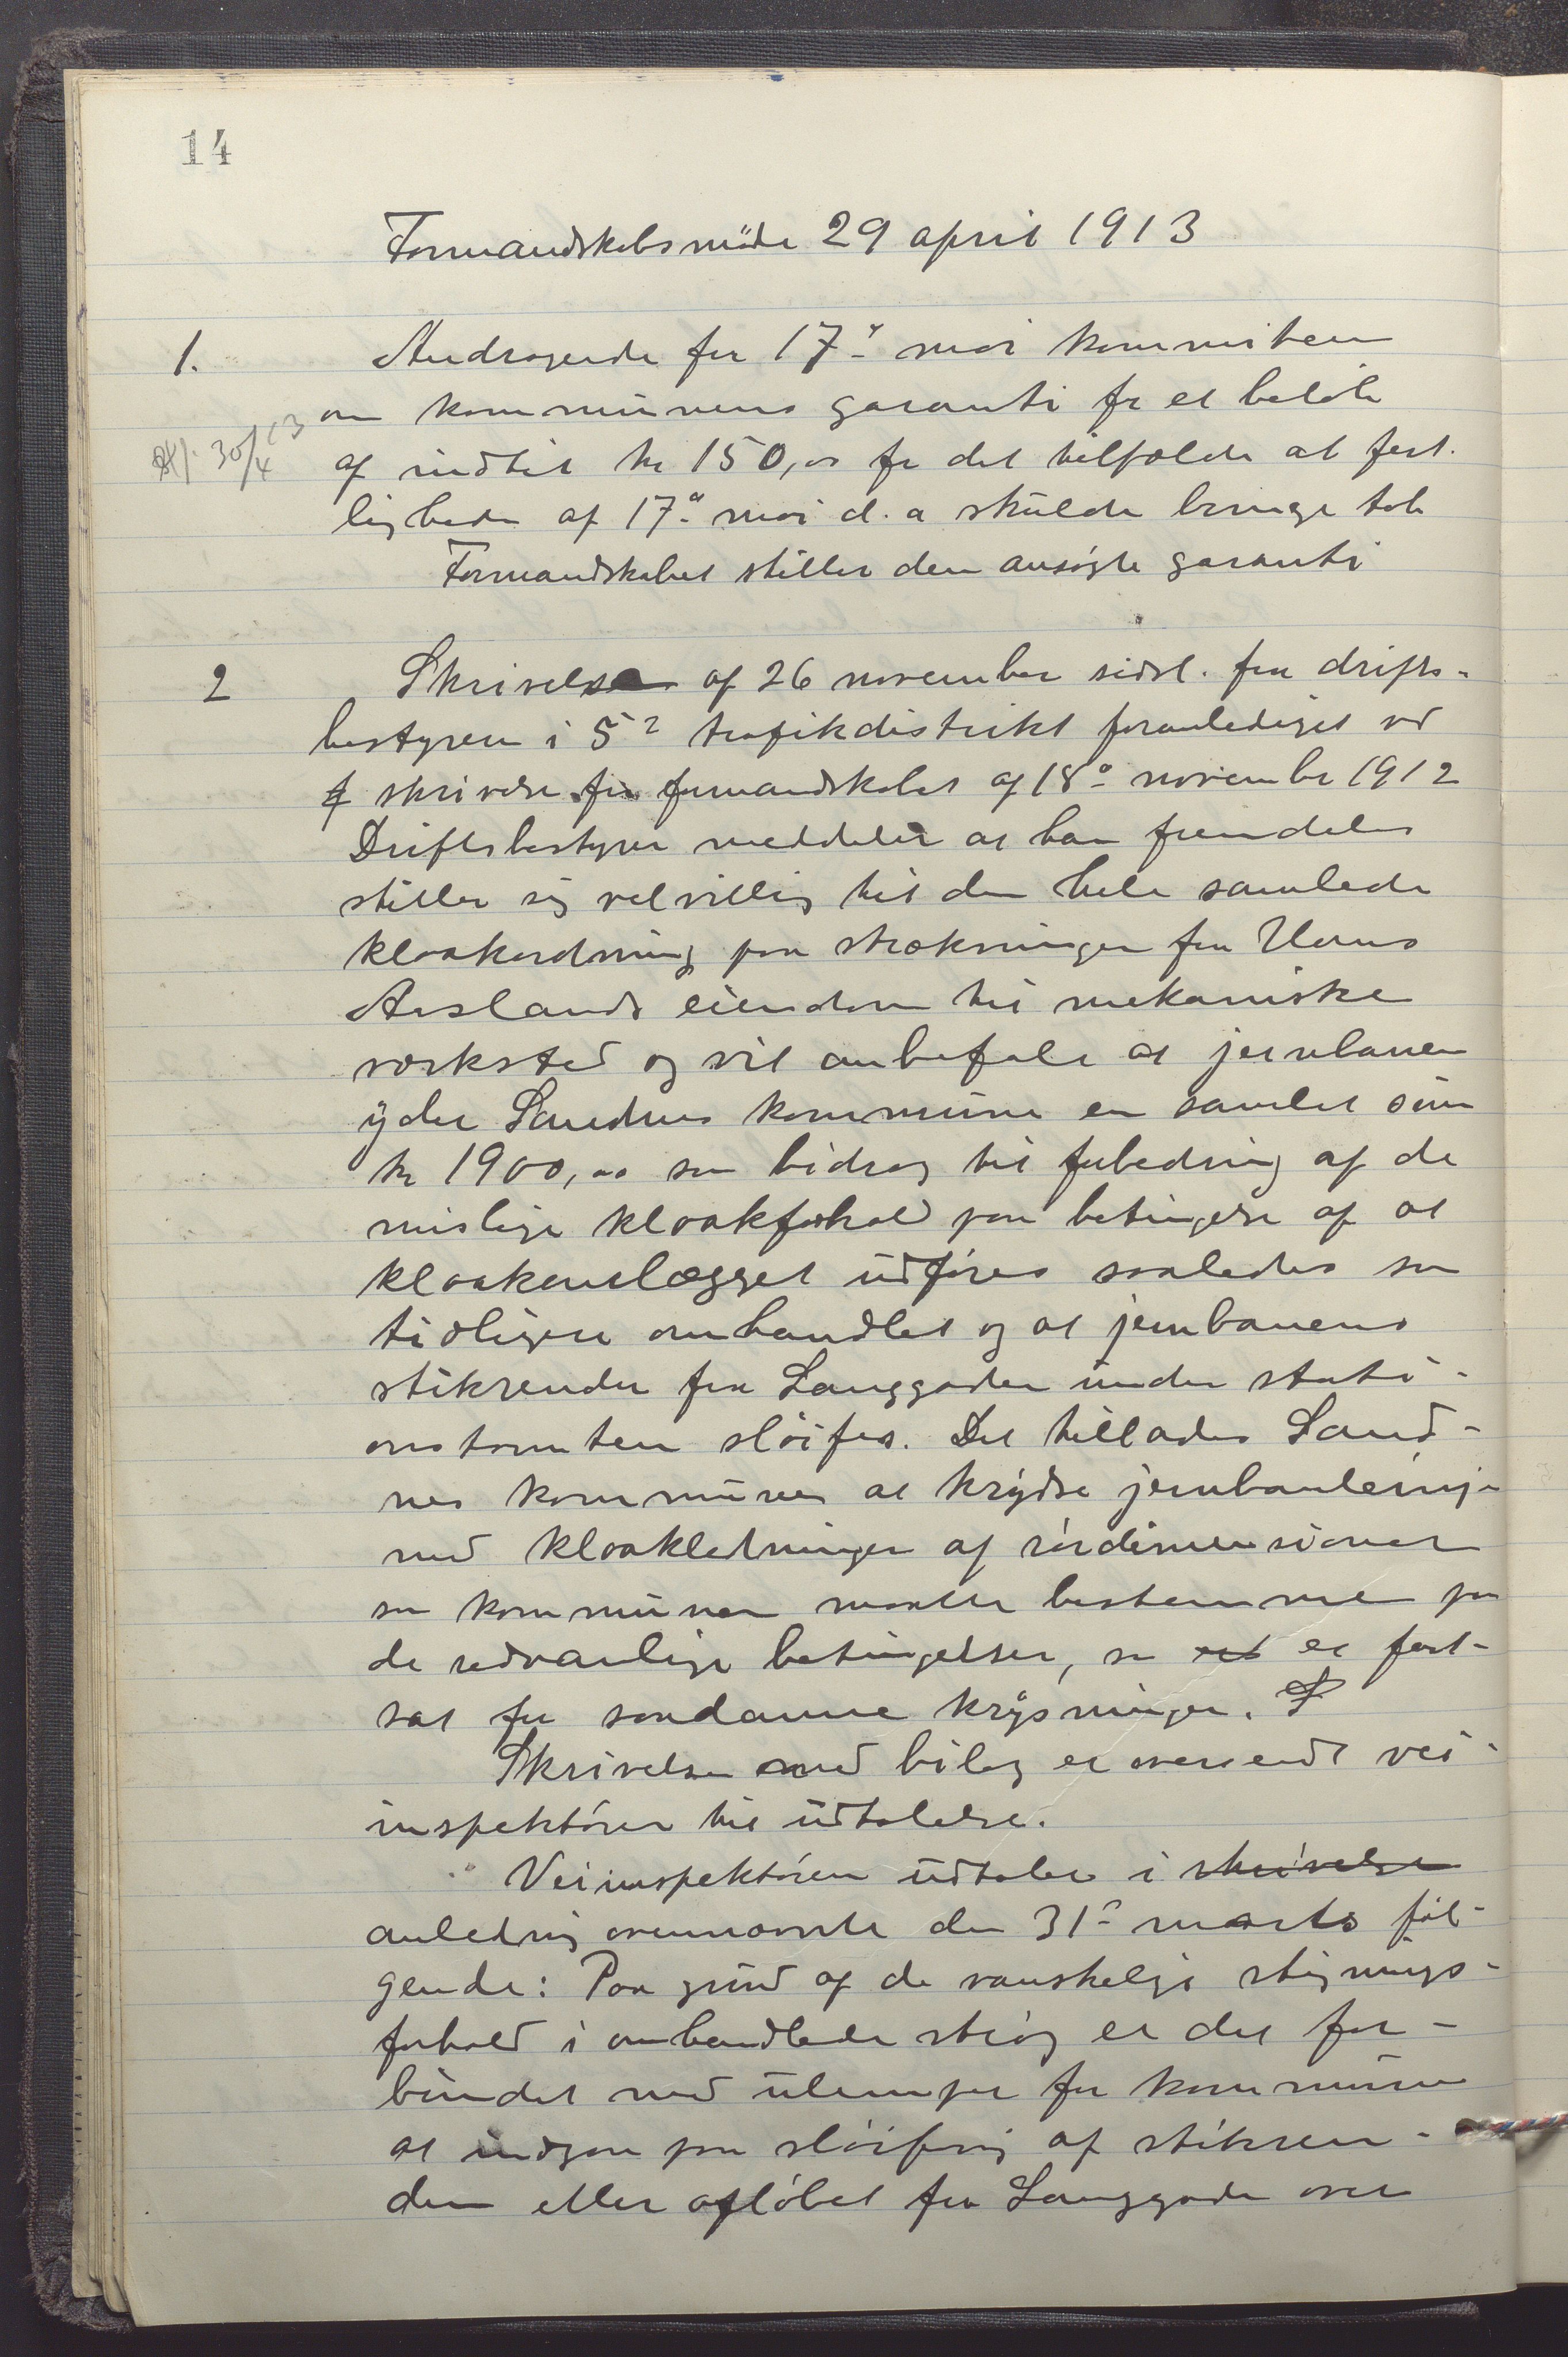 14
Formandskabsmöde 29 april 1913
1. Andragende fra 17de mai kommiteen
om kommunens garanti for et beløb
af indtil kr 150,00 for det tilfælde at fest-
ligheden af 17de mai d. a skulde bringe tab
30/4 13
Formandskabet stiller den ansøgte garanti
2 Skrivelse af 26 november sidstl. fra drifts-
bestyreren i 5te trafikdistrikt foranlediget ved
skrivelse fra formandskabet af 18de november 1912
Driftsbestyrer meddeler at han fremdeles
stiller sig velvillig til den hele samlede
kloakordning paa strækningen fra
Aaslands eiendom til mekaniske
verksted og vil anbefale at jernbanen
yder Sandnes kommune en samlet sum
kr 1900,00 som bidrag til forbedring af de
mislige kloakforhold paa betingelse af at
kloakanlægget udføres saaledes som
tidligere omhandlet og at jernbanens
stikrender fra Langgaden under stati-
onstomten sløifes. Det tillades Sand-
nes kommune at krydse jernbanelinjen
med kloakledninger af rørdimensioner
som kommunen maatte bestemme paa
de sedvanlige betingelser, som er fast-
sat for saadanne krysninger.
Skrivelsen med bilag er oversendt vei-
inspektøren til udtalelse.
Veiinspektøren udtaler i skrivelse
anledning ovennævnte den 31te marts føl-
gende: Paa grund af de vanskelige stignings-
forhold i omhandlede strøg er det for-
bundet med ulemper for kommunen
at indgaa paa sløifning af stikren-
den eller afløbet fra Langgaden over